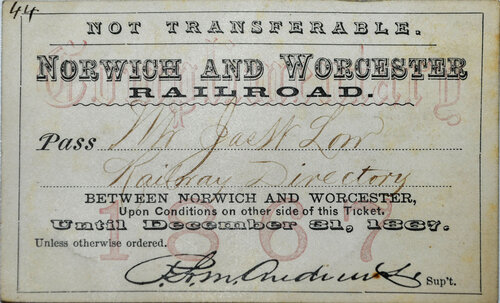 44
NOT TRANSFERABLE.
Complimentary
NORWICH AND WORCESTER
RAILROAD.
Pass Mr Jas W Low
Railway Directory
BETWEEN NORWICH AND WORCESTER,
Upon Conditions on other side of this Ticket.
1867
Until December 31, 1867.
Unless otherwise ordered.
Andrews Sup't.